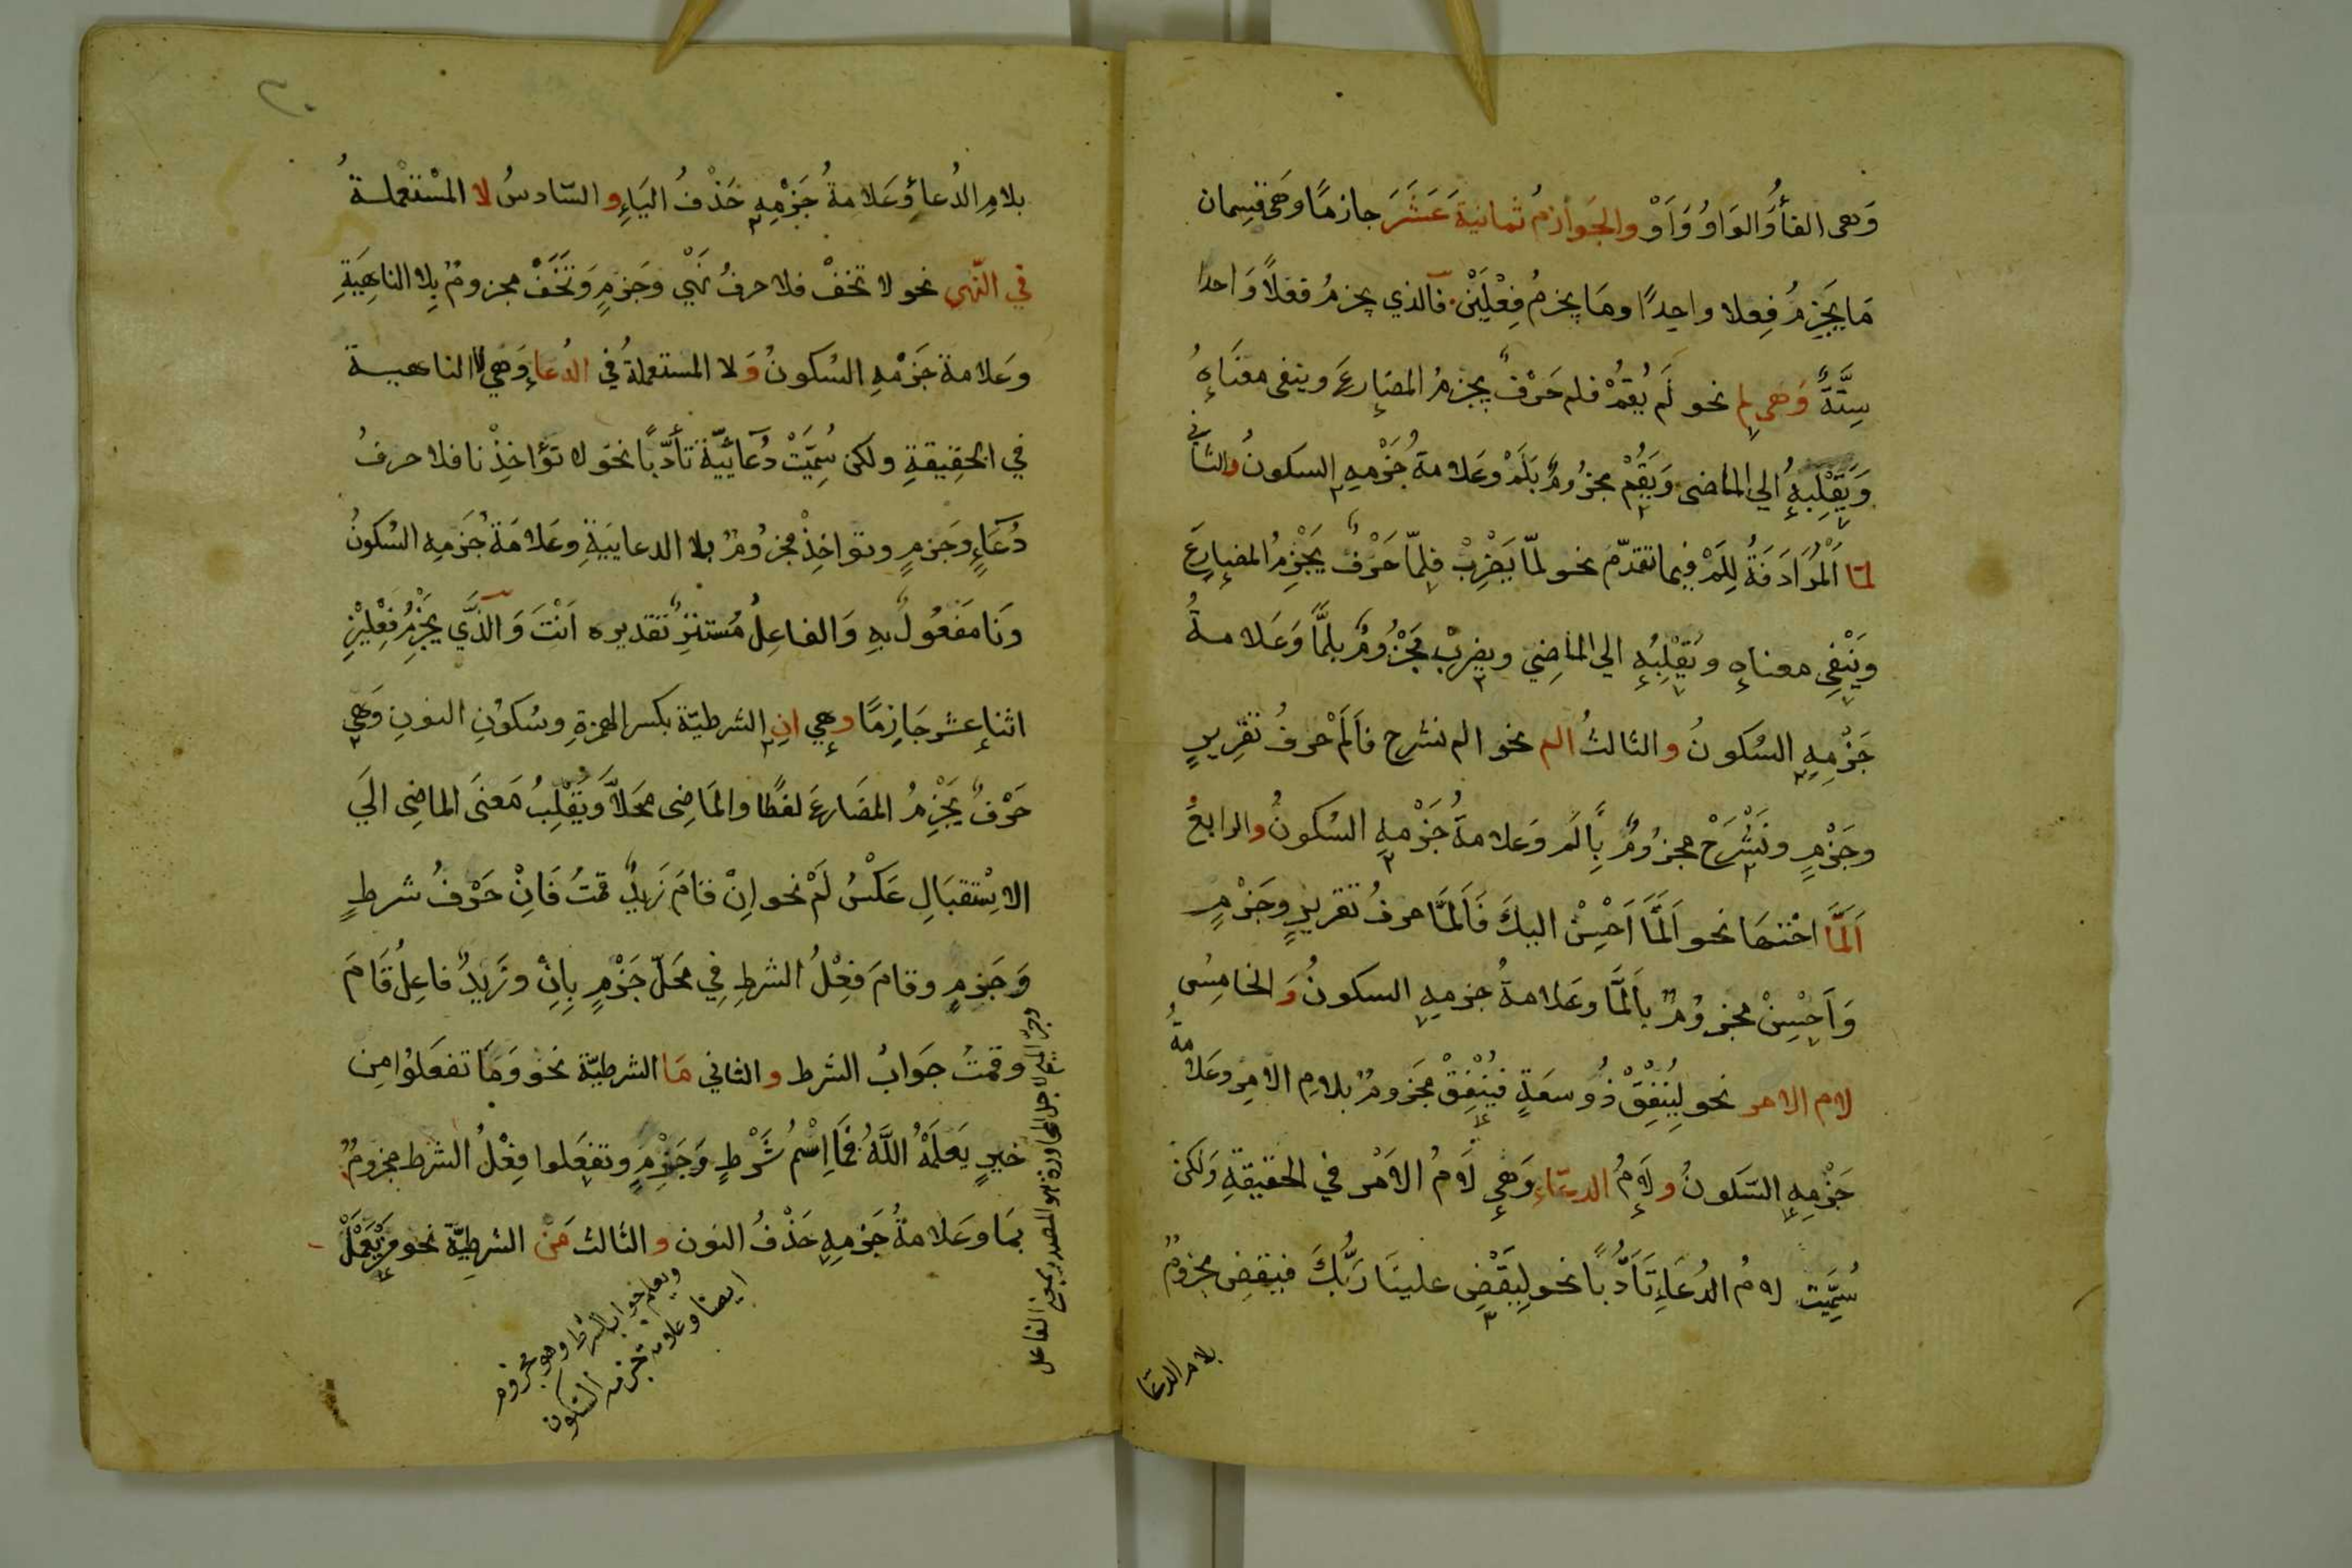 وَهى الفأُ وَالوَاوُ وَاَوْ والجَوازمُ ثمانيةَ عَشَرَ جازمًا وَهى قسِمان
مَا يَجزِمُ فِعلا واحِدًا ومَا يجزمُ فِعْلَيْنْ فالذي يجزمُ فعلاً وَاحدا
سِتَّةٌ وَهى لم نحو لَم يُقمْ فلم حَرْفٌ يجزمُ المضَارعَ وينفى معْنَاهُ
وَيَقْلِبهُ الي الماضى وَيَقُمْ مجزُومٌ بَلَمْ وعَلامةُ جَزْمهِ السكونُ والثانى
لمّا اَلْمُرَادَفَةُ لِلَمْ فيما تقدّمَ نحو لمّا يَضْرِبْ فلِمّا حَرْفٌ يَجْزِمُ المضارِعَ
ويَنْفِى معناهِ ويَقْلِبُهِ الي الماضِي ويضربْ مَجْزُومٌ بلمَّا وَعَلامةُ
جَزْمِهِ السُكونُ والثالثُ الم نحو الم نشرح فاَلَمْ حرفُ تقرِيرٍ
وجَزْمٍ ونَشْرَحْ مجزُومٌ بِاَلَم وَعلامةُ جَزْمهِ السُكونُ والرابعُ
اَلَمَّا اختهَا نحو اَلَمَّا اَحْسِنْ اليكَ فَاَلمَّا حرفُ تقريرٍ وجَزْمٍ
وَاَحْسِنْ مجزومٌ بِاَلَمَّا وعَلامةُ جزمهِ السكونُ وَالخامِسُ
لام الامر نحو لِيُنْفِقْ ذُو سعَةٍ فيُنْفِقْ مَجزومٌ بلامِ الامرِ وعَلامةُ
جَزْمِهِ السّكونُ ولَامُ الدعَاءِ وَهي لَامُ الاَمْر في الحقيقةِ ولكن
سُمِّيَت لامُ الدُعَاءِ تَاَدُّباً نحو لِيَقْضِ علينَا رَبُّكَ فيَقضِ مجزومٌ
بلام الدعَا
٣٠
بلامِ الدُعاءِ وَعَلامةُ جَزْمِهِ حَذْفُ اليَاءِ والسّادسُ لا المسْتعْملةُ
في النّهى نحو لا تخفْ فلا حرفُ نَهْيٍ وَجَزمٍ وَتَخَفْ مجزومٌ بِلا الناهِيَةِ
وعَلامة جَزْمهِ السُكونُ وَلا المستعملةُ في الدُعاءِ وَهي لا الناهية
في الحقِيقةِ ولكن سُمِّيَتْ دُعائيّة تأدّباً نحو لا تؤاخِذْنا فلا حرفُ
دُعَاءٍ وَجَزمٍ وتواخِذْ مجزُومٌ بلا الدعاييَةِ وعَلامَةُ جَزمِهِ السُكونُ
ونَا مَفعُولٌ بهِ وَالفاعِلُ مُستترٌ تقديره اَنْتَ وَالذَّي يَجْزِمُ فِعْلَيْنِ
اثنا عشر جَازِمًا وهِي انِ الشرطيّة بكسر الهمزةِ وسُكوُنِ النونِ وَهِيَ
حَرْفٌ يَجْزِمُ المضَارعَ لفظًا والمَاضِى محَلاًّ وَيَقْلِبُ مَعنَى الماضِى الَي
الاِسْتقبَالِ عَكْسُ لَمْ نحو اِنْ قامَ زَيدٌ قمتُ فَانْ حَرْفُ شرطٍ
وَجَزمٍ وقامَ فِعْلُ الشرطِ فِي محَلِّ جَزْمٍ بِاِنْ وزَيدٌ فاعِلُ قَامَ
وقمتُ جَوابُ الشرط والثاني مَا الشرطيّة نحو وَمَا تفعَلوُا مِن
خيرٍ يَعلَمْهُ اللَّهُ فمَا اِسْمُ شَرْطٍ وَجَزْمٍ وتفعَلوا فِعْلُ الشرط مجزومٌ
بمَا وعَلامةُ جَزمِهِ حَذْفُ النون والثالث مَنْ الشرطِيَّة نحو مَنْ يَعْمَلْ
ويعلم جواب الشرط وهو مجزوم
ايضا وعلامة جزمه السّكون